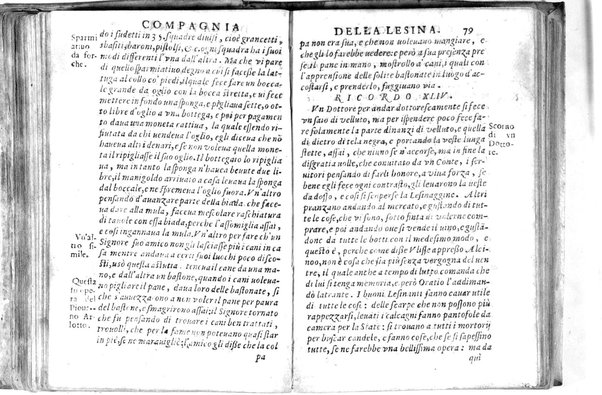 COMPAGNIA
Sparmi
atiuo
da for-
che.
do i sudetti in 35. squadre diuisi, cioè grancetti,
sbasiti, baroni, pistolfi, & c. ogni squadra ha i suoi
modi differenti l'vna dall'altra. Ma che vi pare
di quello sparmiatiuo degno a cui si facesse la lat-
tuga al collo co' piedi, il quale fece far vn bocca-
le grande da oglio con la bocca stretta, e vi fece
mettere in fondo vna sponga, e pigliaua sette, o otto
libre d'oglio a vna bottega, e poi per pagamen
to daua vna moneta cattiua, la quale essendo ri-
fiutata da chi uendeua l'oglio, egli diceua che nò
haueua altri denari, e se non voleua quella mone
ta si ripigliasse il suo oglio. Il bottegaro lo ripiglia
ua, ma in tanto la sponga n'haueua beuute due li-
bre, il manigoldo arriuato a casa leuaua la sponga
dal boccale, e ne spremeua l'oglio fuora. Vn'altro
pensando d'auanzare parte della biada che face-
ua dare alla mula, faceua mescolare raschiatura
di tauole con essa biada, perche l'assomiglia assai,
e così ingannaua la mula. Vn'altro per fare ch'un
Signore suo amico non gli lasciasse più i cani in ca
sa mentre andaua a certi suoi luochi poco disco-
sti, usò questa astutia: teneua il pane da una ma-
no, e dall'altra un bastone, quando i cani uoleua-
no pigliare il pane, daua loro delle bastonate, si
che s'auezzarono a non voler il pane per paura
del bastone, e smagrirono assai; il Signore tornato
che fu pensando di trouare i cani ben trattati,
trouolli, che per la fame non poteuano quasi star
in piè, se ne marauigliò: l'amico gli disse che la col
Vn'al-
tro si-
mile.
Questa
fo ope-
ra del
Pioua-
no Ar-
lotto.
pa
DELLA LESINA. 79
pa non era sua, e che non uoleuano mangiare, e
che gli lo farebbe vedere: e però a sua presenza pre
se il pane in mano, mostrollo a' cani, i quali con
l'apprensione delle solite bastonate in luogo d'ac-
costarsi, e prenderlo, fuggiuano via.
RICORDO XLIV.
Vn Dottore per andar dottorescamente si fece
vn saio di velluto, ma per ispendere poco fece fo-
rare solamente la parte dinanzi di velluto, e quella
di dietro di tela negra, e portando la veste lunga
stette, assai, che nessuno se n'accorse, ma in fine la
disgratia uolle, che conuitato da vn Conte, i ser-
uitori pensando di farli honore, a viua forza, se
bene egli fece ogni contrasto, gli leuarono la ueste
da dosso, e così si scoperse la Lesinaggine. Altri
pranzano andando al mercato, e gustando di tut-
te le cose, che vi sono, sotto finta di volerne com-
prare, e poi andando oue si vende il uino, e gusta-
done da tutte le botti con il medesimo modo, e
questo è, perche come disse Vlisse appresso Alci-
noo, non è cosa che sia più senza vergogna del uen
tre, il quale anche a tempo di lutto comanda che
di lui si tenga memoria, e però Oratio l'addiman-
dò latrante. I buoni Lesinanti fanno cauar utile
di tutte le cose: delle scarpe che non possono più
rappezzarsi, leuati i calcagni fanno pantofole da
camera per la State: si trouano a tutti i mortorij
per buscar candele, e fanno cose, che se si sapessino
tutte, se ne farebbe vna bellissima opera: ma da
Scorno
di vn
Dotto-
re.
qui